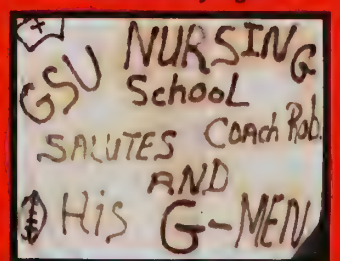 GSU NURSING
School
SALUTES Coach Rob.
AND
His G-MEN